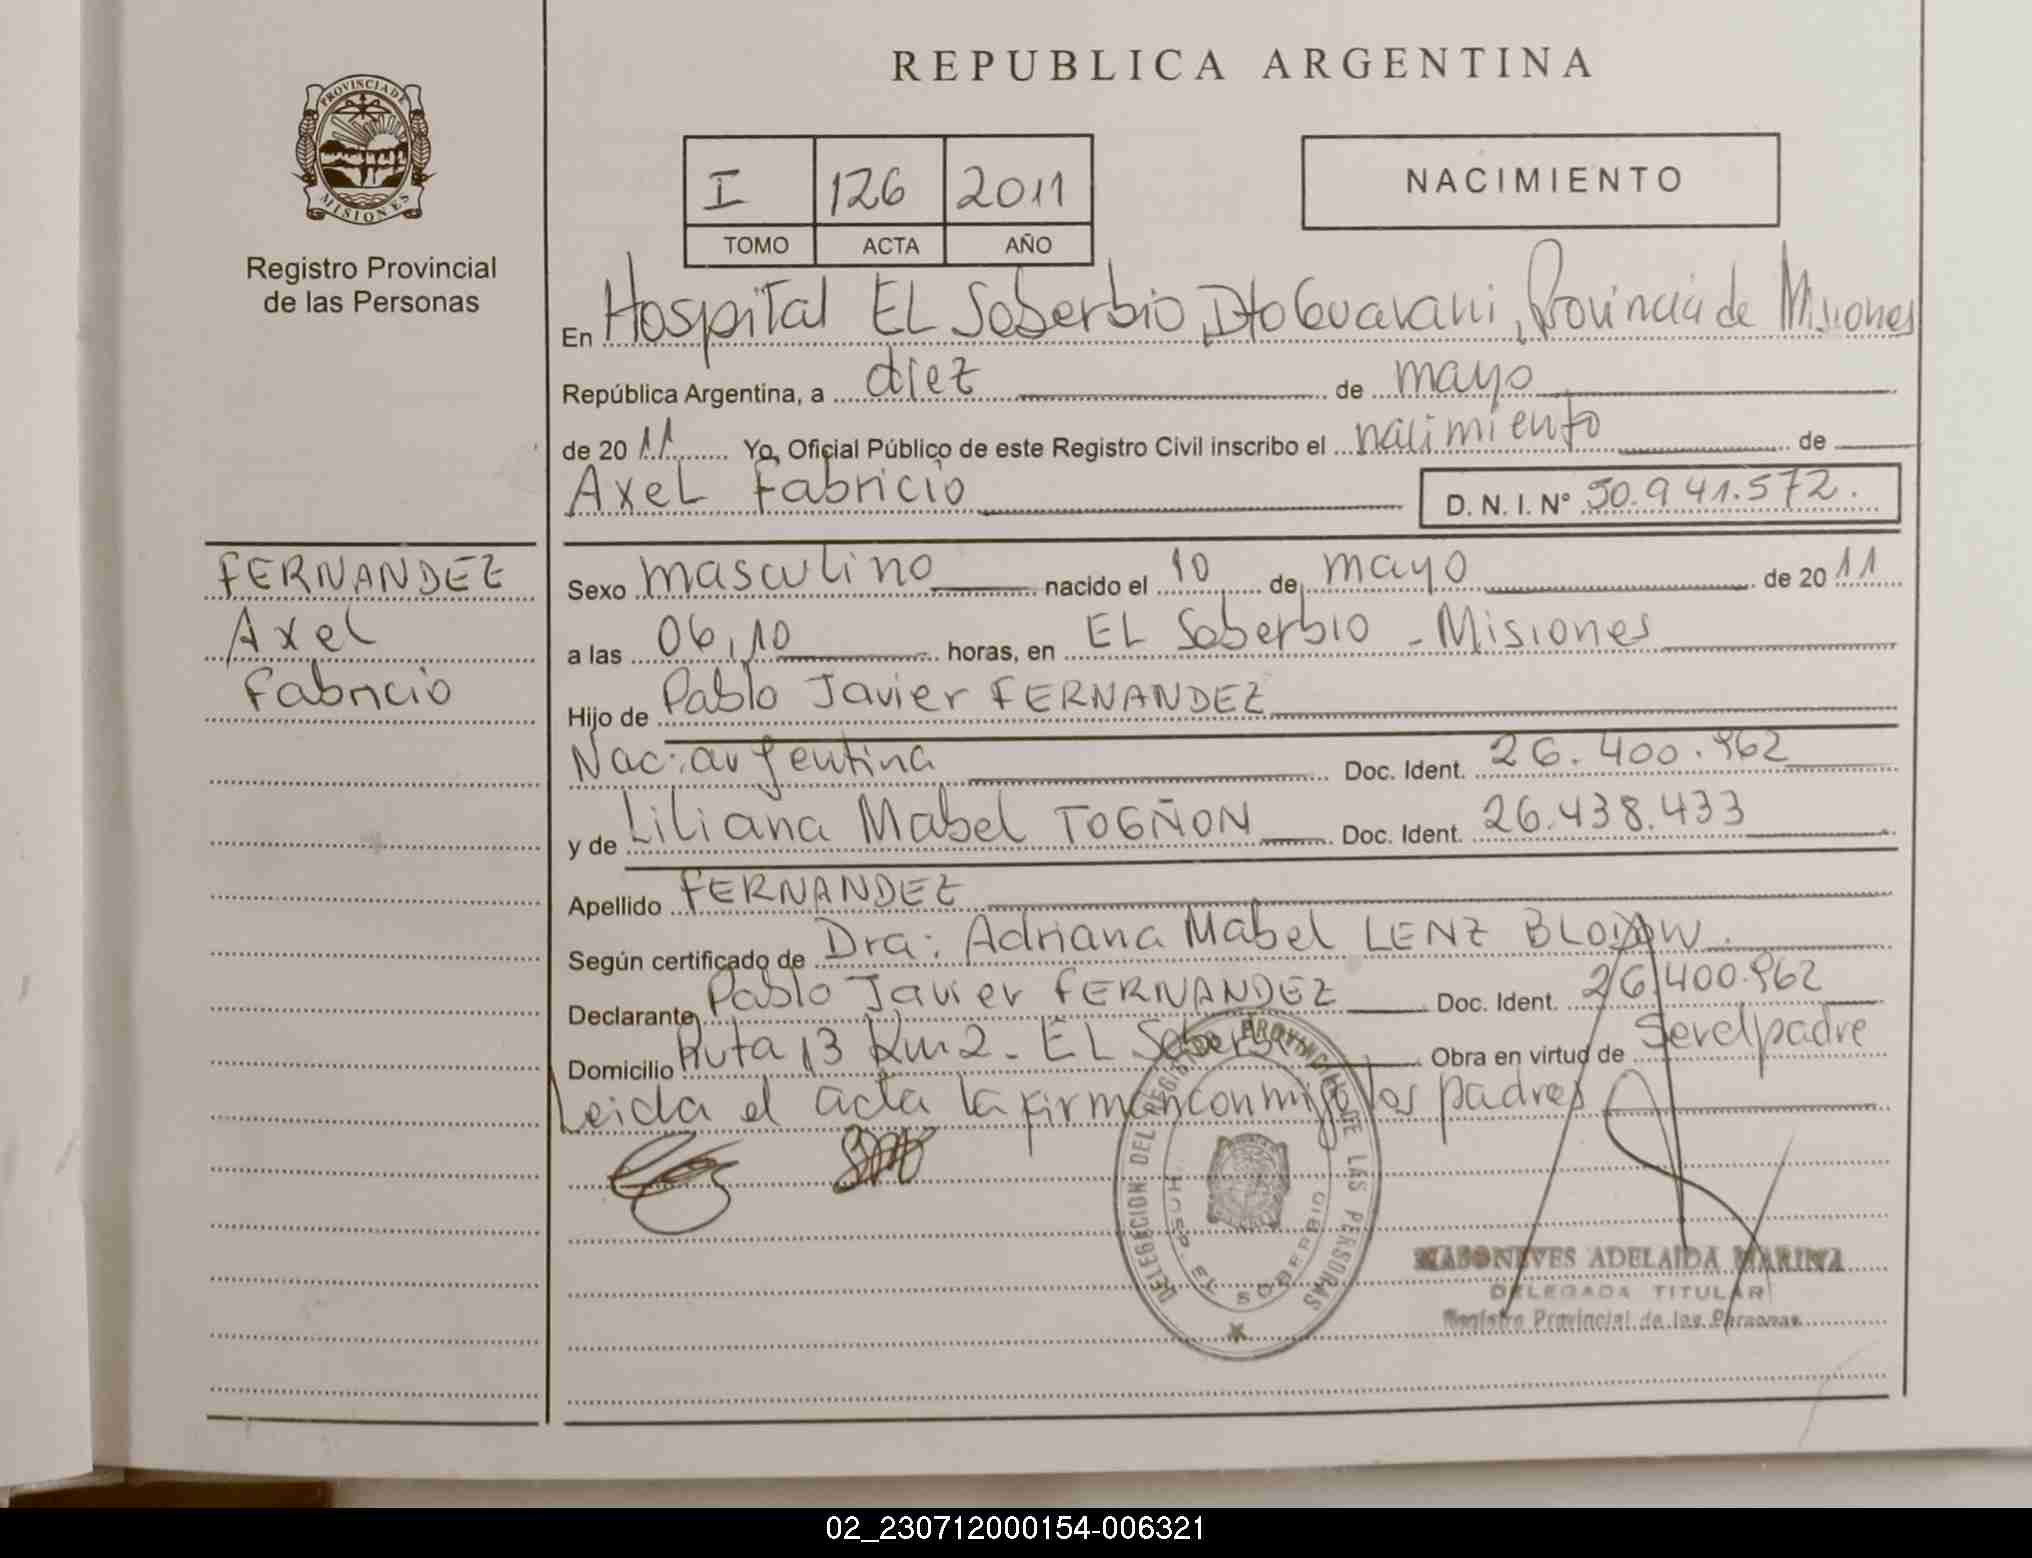 REPUBLICA ARGENTINA
PROVINCIA DE
MISIONES
Registro Provincial
de las Personas
I 126 2011
TOMO ACTA AÑO
NACIMIENTO
En Hospital EL Soberbio, Dto Guarani, Provincia de Misiones
República Argentina, a diez de mayo
de 2011 Yo, Oficial Público de este Registro Civil inscribo el nacimiento de
Axel Fabricio D. N. I. Nº 50.941.572.
FERNANDEZ
Axel
Fabricio
Sexo masculino nacido el 10 de mayo de 2011
a las 06,10 horas, en EL Soberbio - Misiones
Hijo de Pablo Javier FERNANDEZ
Nac: argentina Doc. Ident. 26.400.962
y de Liliana Mabel TOGÑON Doc. Ident. 26.438.433
Apellido FERNANDEZ
Según certificado de Dra: Adriana Mabel LENZ
Declarante Pablo Javier FERNANDEZ Doc. Ident. 26.400.962
Domicilio Ruta 13 Km 2 - EL Obra en virtud de Ser el padre
Leida el acta la firman conmigo los padres
DELEGACION DEL REGISTRO PROVINCIAL DE LAS PERSONAS
HOSP. EL SOBERBIO
ADELAIDA MARINA
DELEGADA TITULAR
Registro Provincial de las Personas
02_230712000154-006321